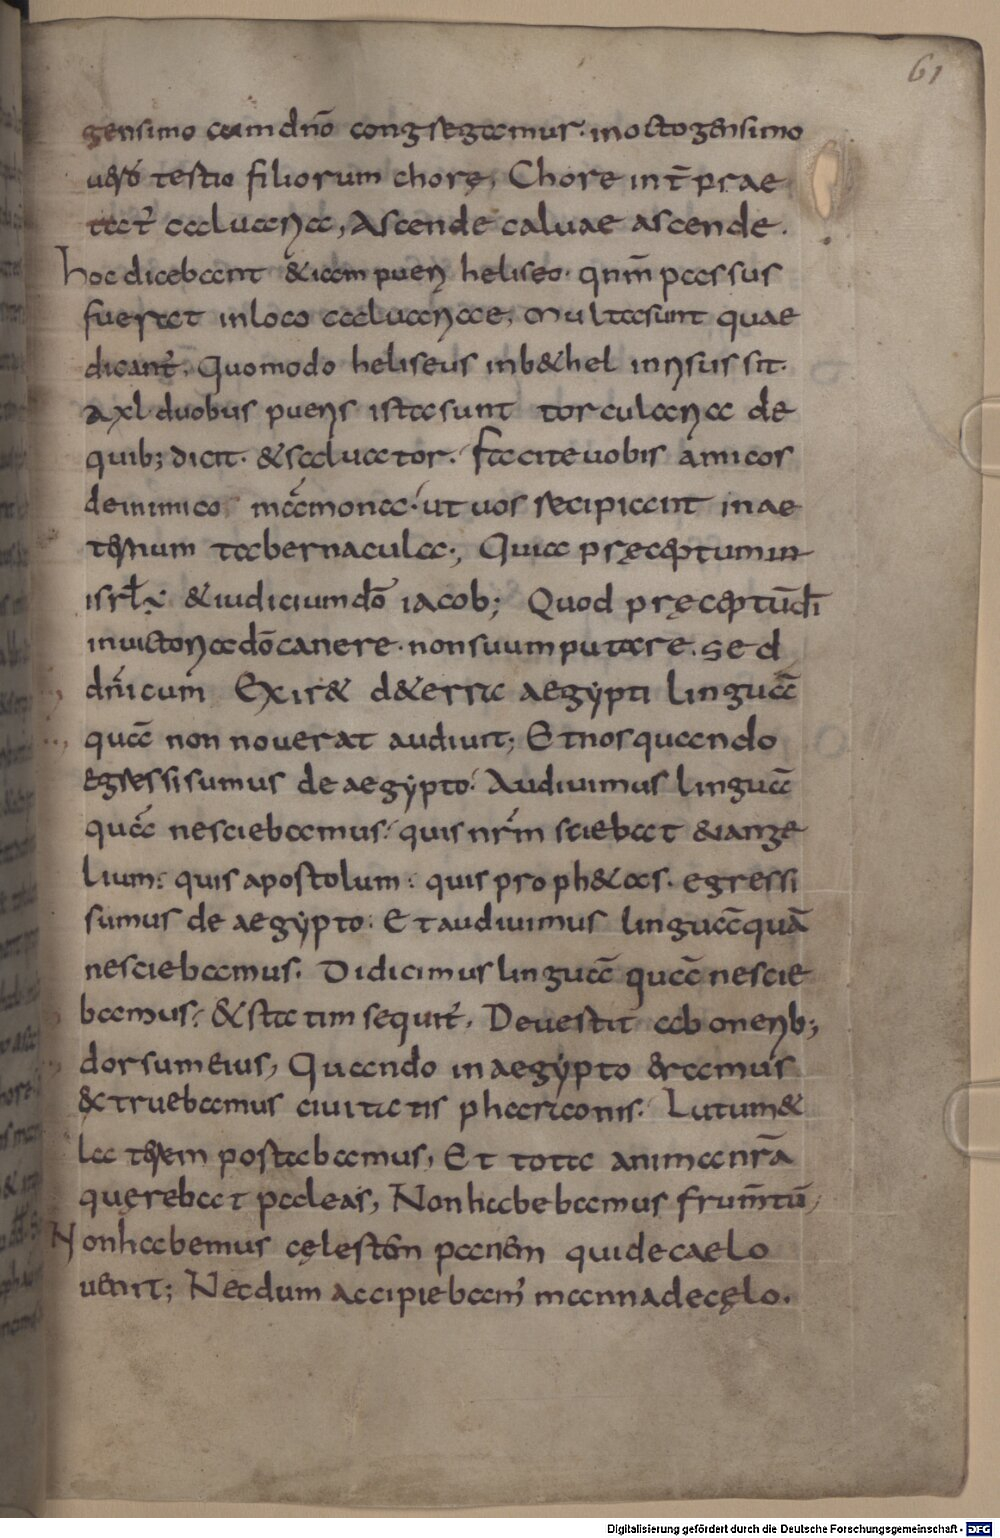 61
gensimo cum dnō congregamus. in octogensimo
uero testio filiorum chorę, Chore in t̄ prae
tat̾ caluaria, Ascende caluae ascende.
hoc dicebant & iam pueri heliseo. qnm̄ passus
fuerat in loco caluariae, Multa sunt quae
dicant̾. Quomodo heliseus in b&hel inrisus sit.
a xl duobus pueris ista sunt torcularia de
quib; dicit. & saluator. facite uobis amicos
de inimico mámona. ut uos recipiant in ae
ternum tabernacula; Quia pręceptum in
isrl̄ & iudicium dō iacob; Quod pręceptū dī
in uictoria dō canere. non suum putare. sed
dn̄icum Exir& d& erra aegypti linguā
quā non nouerat audiuit; Et nos quando
egressi sumus de aegypto. Audiuimus linguā
quā nesciebamus. quis nr̄m sciebat euange
lium. quis apostolum. quis proph&as. egressi
sumus de aegypto. Et audiuimus linguā quā
nesciebamus. Didicimus linguā quā nescie
bamus. & statim sequit̾. Deuestit ab onerib;
dorsum eius, Quando in aegypto eramus
& truebamus ciuitatis pharaonis. Lutum &
la terem postabamus, Et tota anima nr̄a
quęrebat paleas, Non habebamus frum̄tū,
Non habemus cęlestem panem qui de caelo
uenit; Necdum accipiebam̾ manna de cęlo.
Digitalisierung gefördert durch die Deutsche Forschungsgemeinschaft - DFG